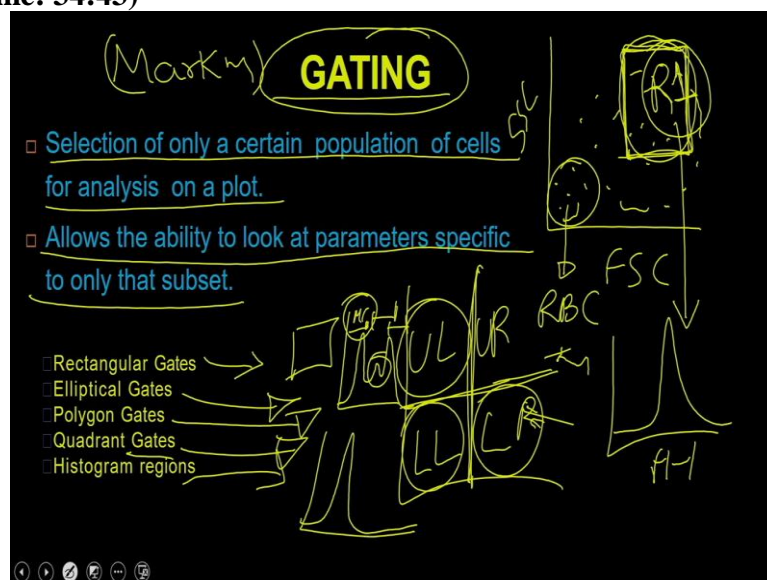 (Marking) GATING
Selection of only a certain population of cells
for analysis on a plot.
Allows the ability to look at parameters specific
to only that subset.
Rectangular Gates
Elliptical Gates
Polygon Gates
Quadrant Gates
Histogram regions
R1
FSC
RBC
UL
UR
LL
LR